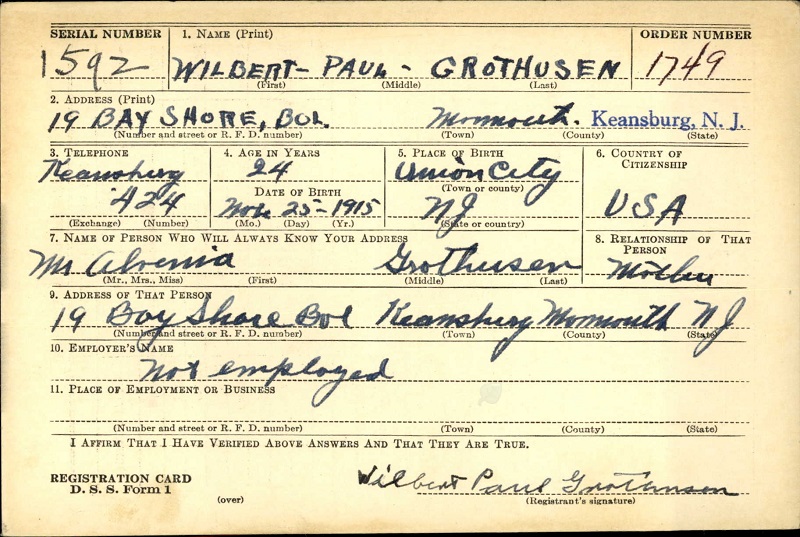 SERIAL NUMBER 1. NAME (Print) ORDER NUMBER
1592 WILBERT - PAUL - GROTHUSEN 1749
(First) (Middle) (Last)
2. ADDRESS (Print)
19 BAY SHORE, BOL. Monmouth. Keansburg, N. J.
(Number and street or R. F. D. number) (Town) (County) (State)
3. TELEPHONE 4. AGE IN YEARS 5. PLACE OF BIRTH 6. COUNTRY OF CITIZENSHIP
Keansburg 24 Union City
(Town or county)
DATE OF BIRTH
424 Nov. 25-1915 NJ USA
(Exchange) (Number) (Mo.) (Day) (Yr.) (State or country)
7. NAME OF PERSON WHO WILL ALWAYS KNOW YOUR ADDRESS 8. RELATIONSHIP OF THAT PERSON
Mr Alvenia Grothusen Mother
(Mr., Mrs., Miss) (First) (Middle) (Last)
9. ADDRESS OF THAT PERSON
19 Bay Shore Bol Keansburg Monmouth NJ
(Number and street or R. F. D. number) (Town) (County) (State)
10. EMPLOYER'S NAME
Not employed
11. PLACE OF EMPLOYMENT OR BUSINESS
(Number and street or R. F. D. number) (Town) (County) (State)
I AFFIRM THAT I HAVE VERIFIED ABOVE ANSWERS AND THAT THEY ARE TRUE.
REGISTRATION CARD Wilbert Paul Grothusen
D. S. S. Form 1 (over) (Registrant's signature)